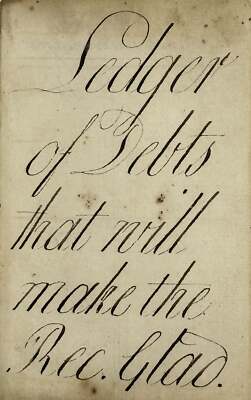 Ledger
of Debts
that will
make the
Rec. Glad.